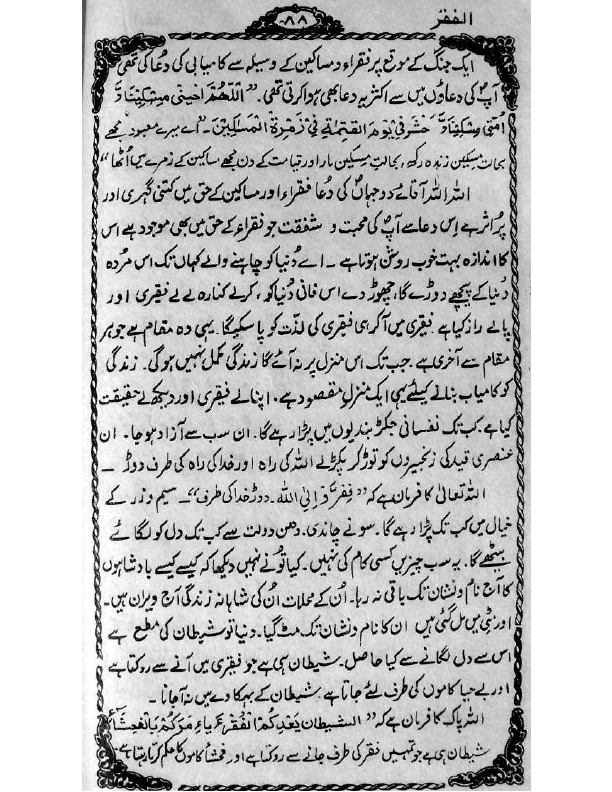 الفقر
۸۸
ایک جنگ کے موقع پر فقراء و مساکین کے وسیلہ سے کامیابی کی دعا کی تھی
آپؐ کی دعاؤں میں سے اکثر یہ دعا بھی ہوا کرتی تھی۔ "اَللّٰھُمَّ اَحْیِنِیْ مِسْکِیْنًا وَّ
اَمِتْنِیْ مِسْکِیْنًا وَّ حْشُرْنِیْ یَوْمَ الْقِیٰمَۃِ فِیْ زُمْرَۃِ الْمَسَاکِیْنَ۔" اے میرے معبود مجھے
بحالت مسکین زندہ رکھ، بحالتِ مسکین مار اور قیامت کے دن مجھے مساکین کے زمرے میں اُٹھا"
اللہ اللہ آقائے دو جہاںؐ کی دُعا فقراء اور مساکین کے حق میں کتنی گہری اور
پُر اثر ہے اِس دعا سے آپؐ کی محبت و شفقت جو فقراء کے حق میں بھی موجود ہے اس
کا اندازہ بہت خوب روشن ہوتا ہے۔ اے دُنیا کو چاہنے والے کہاں تک اس مُردہ
دُنیا کے پیچھے دوڑے گا، چھوڑ دے اس فانی دُنیا کو، کرلے کنارہ لے لے فقیری اور
پالے راز کیا ہے فقیری میں آ کر ہی فقیری کی لذّت کو پا سکیگا۔ یہی وہ مقام ہے جو ہر
مقام سے آخری ہے۔ جب تک اس منزل پر نہ آئے گا زندگی مکمل نہیں ہوگی۔ زندگی
کو کامیاب بنانے کیلئے یہی ایک منزلِ مقصود ہے۔ اپنا لے فقیری اور دیکھ لے حقیقت
کیا ہے کب تک نفسانی جکڑ بندیوں میں پڑا رہے گا۔ ان سب سے آزاد ہو جا۔ ان
عنصری قید کی زنجیروں کو توڑ کر پکڑ لے اللہ کی راہ اور خدا کی راہ کی طرف دوڑ ۔
اللہ تعالیٰ کا فرمان ہے کہ "فَفِرُّوْٓا اِلَی اللہ۔ دوڑ خدا کی طرف"۔ سیم و زر کے
خیال میں کب تک پڑا رہے گا۔ سونے چاندی۔ دھن دولت سے کب تک دل کو لگائے
بیٹھے گا۔ یہ سب چیزیں کسی کام کی نہیں۔ کیا تُو نے نہیں دیکھا کہ کیسے کیسے بادشاہوں
کا آج نام و نشان تک باقی نہ رہا۔ اُن کے محلات اُن کی شاہانہ زندگی آج ویران ہیں۔
اور مٹی میں مل گئی ہیں ان کا نام و نشان تک مٹ گیا۔ دنیا تو شیطان کی مطیع ہے
اس سے دل لگانے سے کیا حاصل۔ شیطان ہی ہے جو فقیری میں آنے سے روکتا ہے
اور بے حیا کاموں کی طرف لئے جاتا ہے شیطان کے بہکاوے میں نہ آجانا۔
اللہ پاک کا فرمان ہے کہ "الشیطان یعدکم الفقر ویاء مرکم بالفحشآء
شیطان ہی ہے جو تمہیں فقر کی طرف جانے سے روکتا ہے اور فحشأ کاموں کا حکم کرتا رہتا ہے